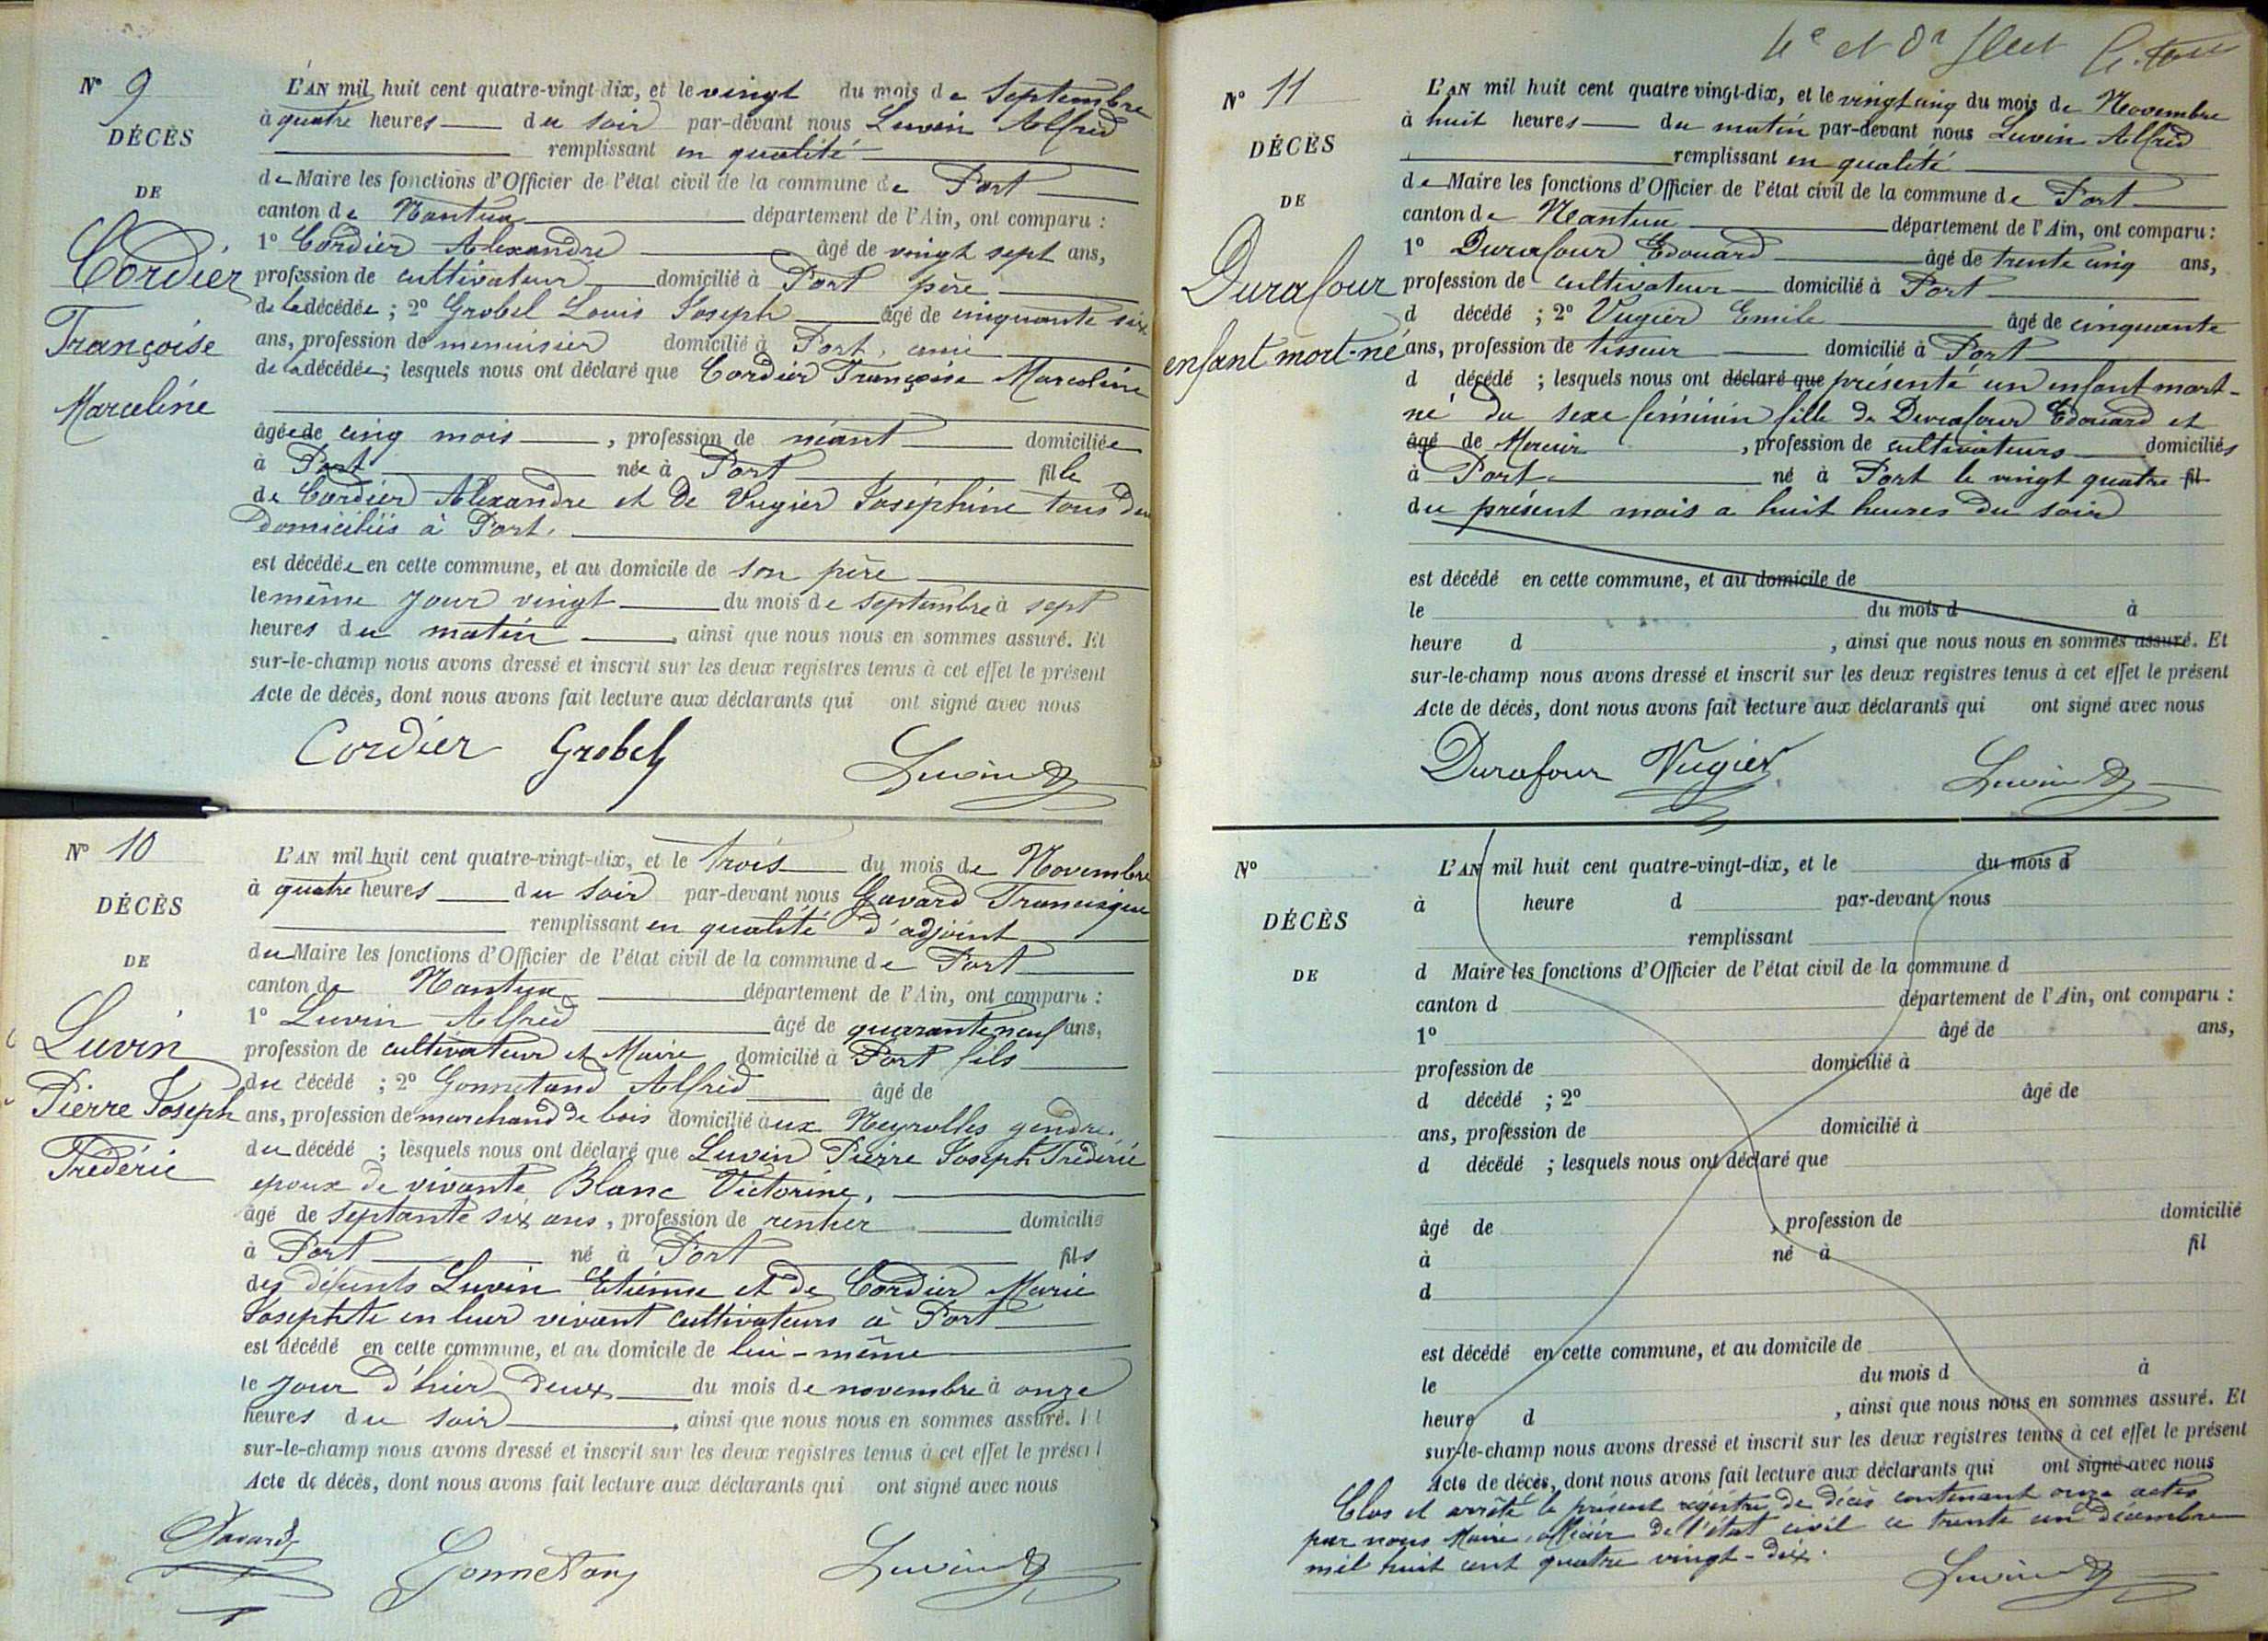 Nº 9
DÉCÈS
DE
Cordier
Françoise
Marceline
L'AN mil huit cent quatre-vingt-dix, et le vingt du mois de Septembre
à quatre heures du soir par-devant nous Luvin Alfred
remplissant en qualité
de Maire les fonctions d'Officier de l'état civil de la commune de Port
canton de Nantua département de l'Ain, ont comparu :
1º Cordier Alexandre âgé de vingt sept ans,
profession de cultivateur domicilié à Port père
de la décédée ; 2º Grobel Louis Joseph âgé de cinquante six
ans, profession de menuisier domicilié à Port, ami
de la décédée ; lesquels nous ont déclaré que Cordier Françoise Marceline
âgée de cinq mois , profession de néant domiciliée
à Port née à Port fille
de Cordier Alexandre et de Vugier Joséphine tous deux
domiciliés à Port.
est décédée en cette commune, et au domicile de son père
le même jour vingt du mois de septembre à sept
heures du matin , ainsi que nous nous en sommes assuré. Et
sur-le-champ nous avons dressé et inscrit sur les deux registres tenus à cet effet le présent
Acte de décès, dont nous avons fait lecture aux déclarants qui ont signé avec nous
Cordier Grobel Luvin
Nº 10
DÉCÈS
DE
Luvin
Pierre Joseph
Frédéric
L'AN mil huit cent quatre-vingt-dix, et le trois du mois de Novembre
à quatre heures du soir par-devant nous Gavard Francisque
remplissant en qualité d'adjoint
du Maire les fonctions d'Officier de l'état civil de la commune de Port
canton de Nantua département de l'Ain, ont comparu :
1º Luvin Alfred âgé de quarante neuf ans,
profession de cultivateur et Maire domicilié à Port fils
du décédé ; 2º Gonnetand Alfred âgé de
ans, profession de marchand de bois domicilié aux Neyrolles gendre.
du décédé ; lesquels nous ont déclaré que Luvin Pierre Joseph Frédéric
epoux de vivante Blanc Victorine,
âgé de septante six ans , profession de rentier domicilié
à Port né à Port fils
des défunts Luvin Etienne et de Cordier Marie
Josephte en leur vivant cultivateurs à Port
est décédé en cette commune, et au domicile de lui-même
le jour d'hier deux du mois de novembre à onze
heures du soir , ainsi que nous nous en sommes assuré. Et
sur-le-champ nous avons dressé et inscrit sur les deux registres tenus à cet effet le présent
Acte de décès, dont nous avons fait lecture aux déclarants qui ont signé avec nous
Gavard Gonnetand Luvin
4e et Dr
Nº 11
DÉCÈS
DE
Durafour
enfant mort-né
L'AN mil huit cent quatre vingt-dix, et le vingt cinq du mois de Novembre
à huit heures du matin par-devant nous Luvin Alfred
remplissant en qualité
de Maire les fonctions d'Officier de l'état civil de la commune de Port
canton de Nantua département de l'Ain, ont comparu :
1º Durafour Edouard âgé de trente cinq ans,
profession de cultivateur domicilié à Port
d décédé ; 2º Vugier Emile âgé de cinquante
ans, profession de tisseur domicilié à Port
d décédé ; lesquels nous ont déclaré que présenté un enfant mort-
né du sexe féminin fille de Durafour Edouard et
âgé de Mercier , profession de cultivateurs domiciliés
à Port né à Port le vingt quatre fil
du présent mois a huit heures du soir
est décédé en cette commune, et au domicile de
le du mois d à
heure d , ainsi que nous nous en sommes assuré. Et
sur-le-champ nous avons dressé et inscrit sur les deux registres tenus à cet effet le présent
Acte de décès, dont nous avons fait lecture aux déclarants qui ont signé avec nous
Durafour Vugier Luvin
Nº
DÉCÈS
DE
L'AN mil huit cent quatre-vingt-dix, et le du mois d
à heure d par-devant nous
remplissant
d Maire les fonctions d'Officier de l'état civil de la commune d
canton d département de l'Ain, ont comparu :
1º âgé de ans,
profession de domicilié à
d décédé ; 2º âgé de
ans, profession de domicilié à
d décédé ; lesquels nous ont déclaré que
âgé de , profession de domicilié
à né à fil
d
est décédé en cette commune, et au domicile de
le du mois d à
heure d , ainsi que nous nous en sommes assuré. Et
sur-le-champ nous avons dressé et inscrit sur les deux registres tenus à cet effet le présent
Acte de décès, dont nous avons fait lecture aux déclarants qui ont signé avec nous
Clos et arrêté le présent registre de décès contenant onze actes
par nous Maire officier de l'état civil ce trente un décembre
mil huit cent quatre vingt-dix.
Luvin